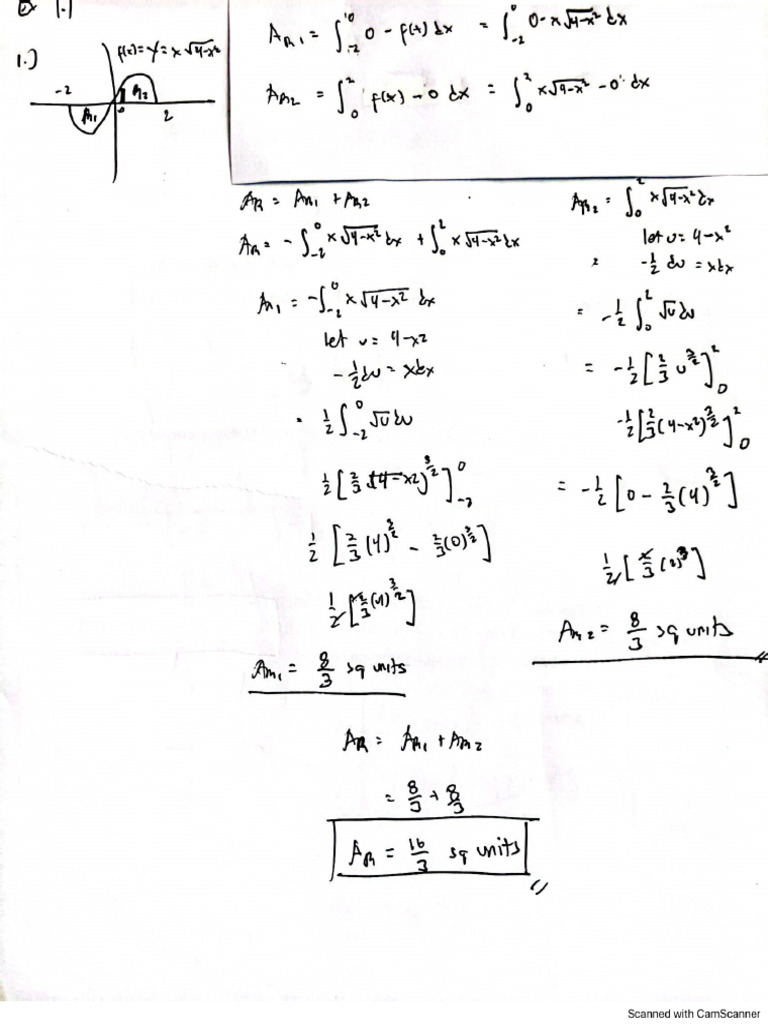 Ex 1.1
1.)
f(x) = y = x√(4-x²)
-2
R₁ R₂
2
A_R1 = ∫_{-2}^{0} 0 - f(x) dx = ∫_{-2}^{0} 0 - x√(4-x²) dx
A_R2 = ∫_{0}^{2} f(x) - 0 dx = ∫_{0}^{2} x√(4-x²) - 0 dx
A_R = A_R1 + A_R2
A_R = -∫_{-2}^{0} x√(4-x²) dx + ∫_{0}^{2} x√(4-x²) dx
A_R1 = -∫_{-2}^{0} x√(4-x²) dx
let u = 4-x2
-1/2 du = xdx
= 1/2 ∫_{-2}^{0} √u du
1/2 [2/3 (4-x2)^{3/2}]_{-2}^{0}
1/2 [2/3 (4)^{3/2} - 2/3 (0)^{3/2}]
1/2 [2/3 (4)^{3/2}]
A_R1 = 8/3 sq units
A_R2 = ∫_{0}^{2} x√(4-x²) dx
let u = 4-x²
-1/2 du = xdx
= -1/2 ∫_{0}^{2} √u du
= -1/2 [2/3 u^{3/2}]_{0}^{2}
-1/2 [2/3 (4-x²)^{3/2}]_{0}^{2}
= -1/2 [0 - 2/3 (4)^{3/2}]
1/2 [2/3 (2)^3]
A_R2 = 8/3 sq units
A_R = A_R1 + A_R2
= 8/3 + 8/3
A_R = 16/3 sq units
Scanned with CamScanner